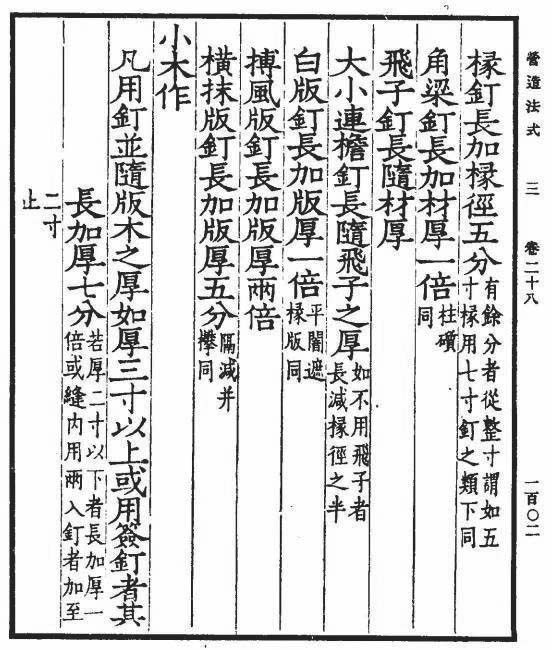 營造法式 三 卷二十八 一百〇二
椽釘長加椽徑五分有餘分者從整寸謂如五
寸椽用七寸釘之類下同
角梁釘長加材厚一倍柱礩
同
飛子釘長隨材厚
大小連檐釘長隨飛子之厚如不用飛子者
長減椽徑之半
白版釘長加版厚一倍平闇遮
椽版同
搏風版釘長加版厚兩倍
橫抹版釘長加版厚五分隔減并
襻同
小木作
凡用釘並隨版木之厚如厚三寸以上或用簽釘者其
長加厚七分若厚二寸以下者長加厚一
倍或縫內用兩入釘者加至
二寸
止